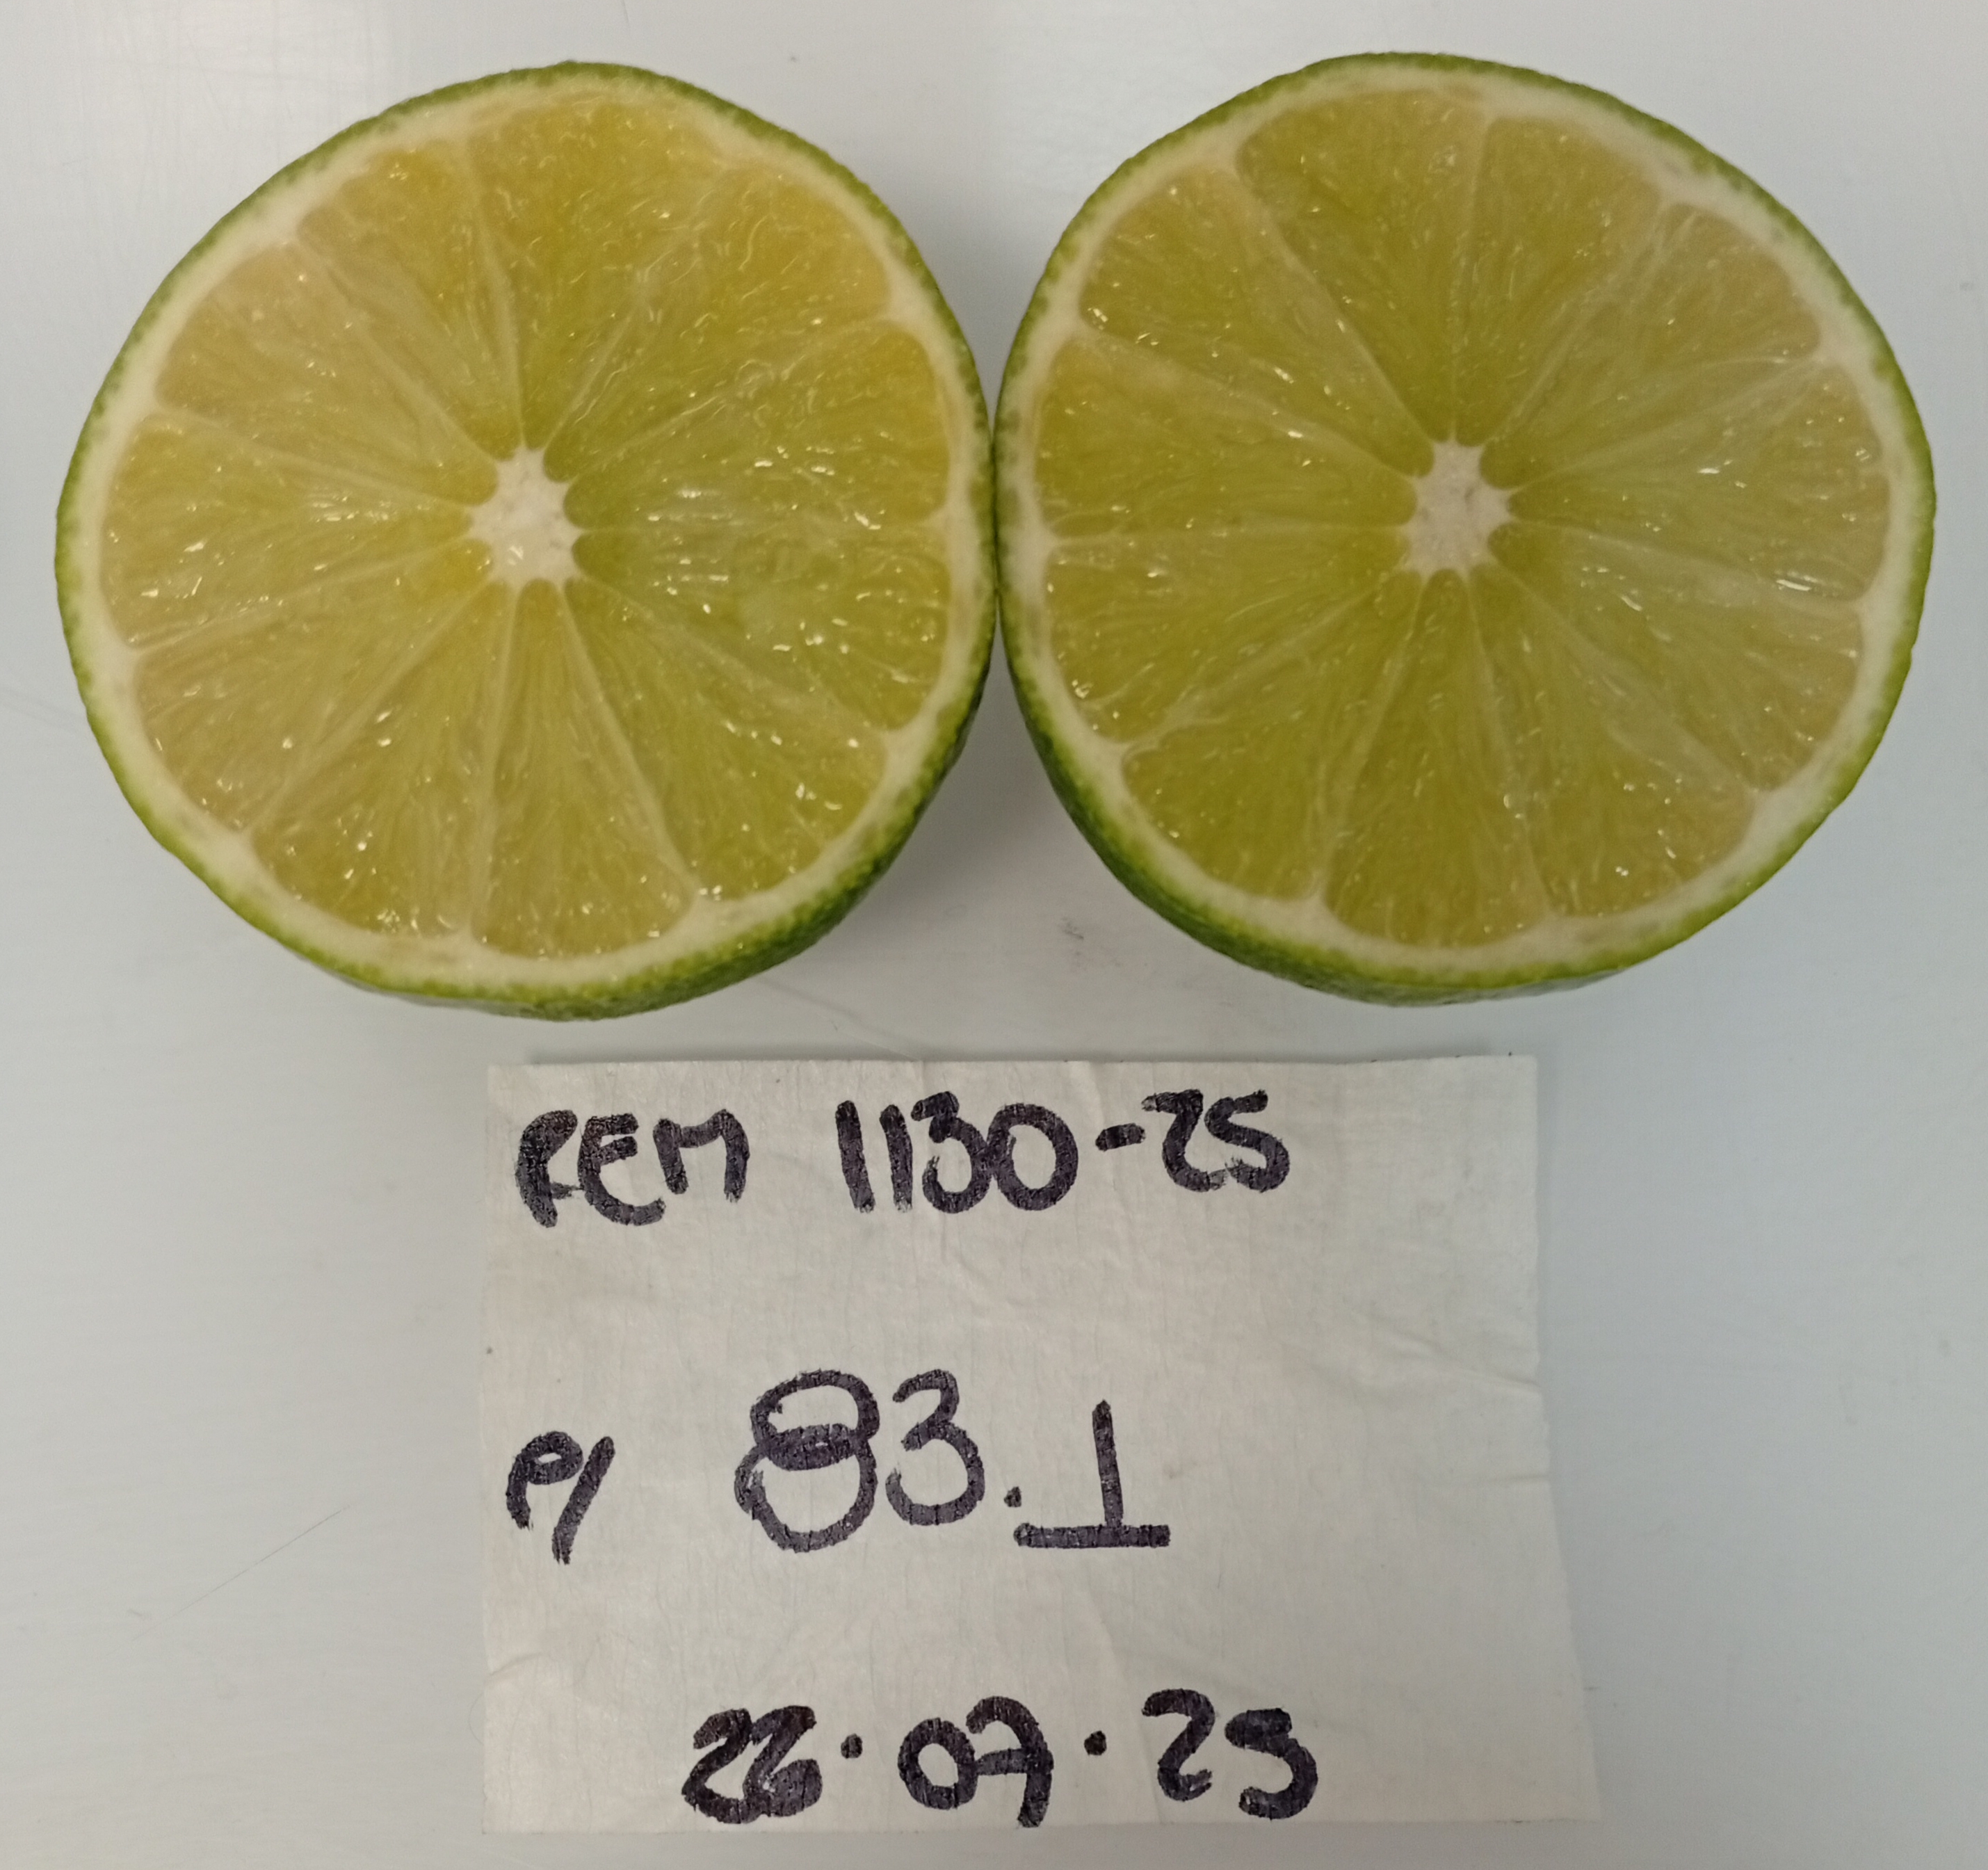 REM 1130-25
P/ 83.1
22.07.25